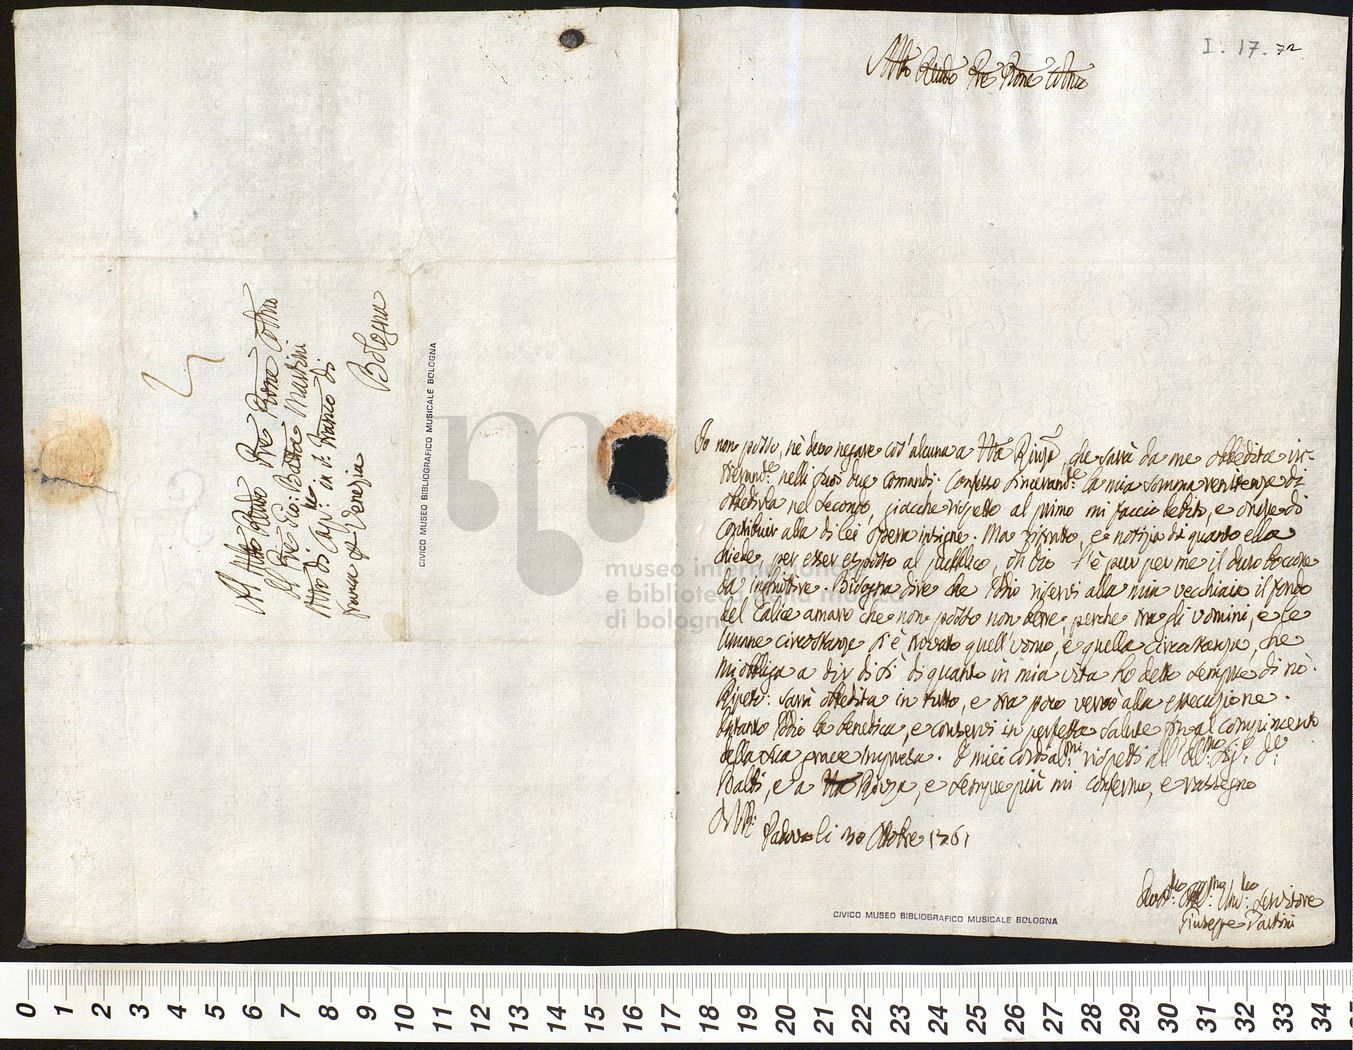 I. 17. 72
Molto Revdo Pre Prone Colmo
Io non posso, nè devo negare cos'alcuna a Vra Rivza, che sarà da me obbedita in-
nelli suoi due comandi. Confesso sinceramte la mia somma renitenza di
obbedirla nel secondo, giacche rispetto al primo mi faccio debito, e onore di
contribuir alla di lei opera insigne. Ma ritratto, e notizia di quanto ella
chiede per esser esposto al pubblico, oh Dio l'è pur per me il duro boccone
da inghiottire. Bisogna dire che Iddio riservi alla mia vecchiaia il fondo
del Calice amaro che non posso non bere, perche tra gli uomini, e le
umane circostanze si è trovato quell'uomo, e quella circostanza, che
mi obbliga a dir di sì di quanto in mia vita ho detto sempre di nò.
Ripeto: sarà obbedita in tutto, e tra poco verrò alla essecuzione.
Intanto Iddio la benedica, e conservi in perfetta salute fin al compimento
della sua grave Impresa. I miei cordialmi rispetti all' Sigr Dr
Balbi, e a Vra Rivza, e sempre più mi confermo, e rassegno
D. V. R.
Padova li 30 Ottobre 1761
Servitore
Giuseppe Tartini
Al Molto Revdo Pre Prone Colmo
Il Pre Gio: Batta Martini
Mro di Capplla in S. Franco di
franca p Venezia
Bologna
CIVICO MUSEO BIBLIOGRAFICO MUSICALE BOLOGNA
CIVICO MUSEO BIBLIOGRAFICO MUSICALE BOLOGNA
museo internazionale
e biblioteca della musica
di bologna
0 1 2 3 4 5 6 7 8 9 10 11 12 13 14 15 16 17 18 19 20 21 22 23 24 25 26 27 28 29 30 31 32 33 34